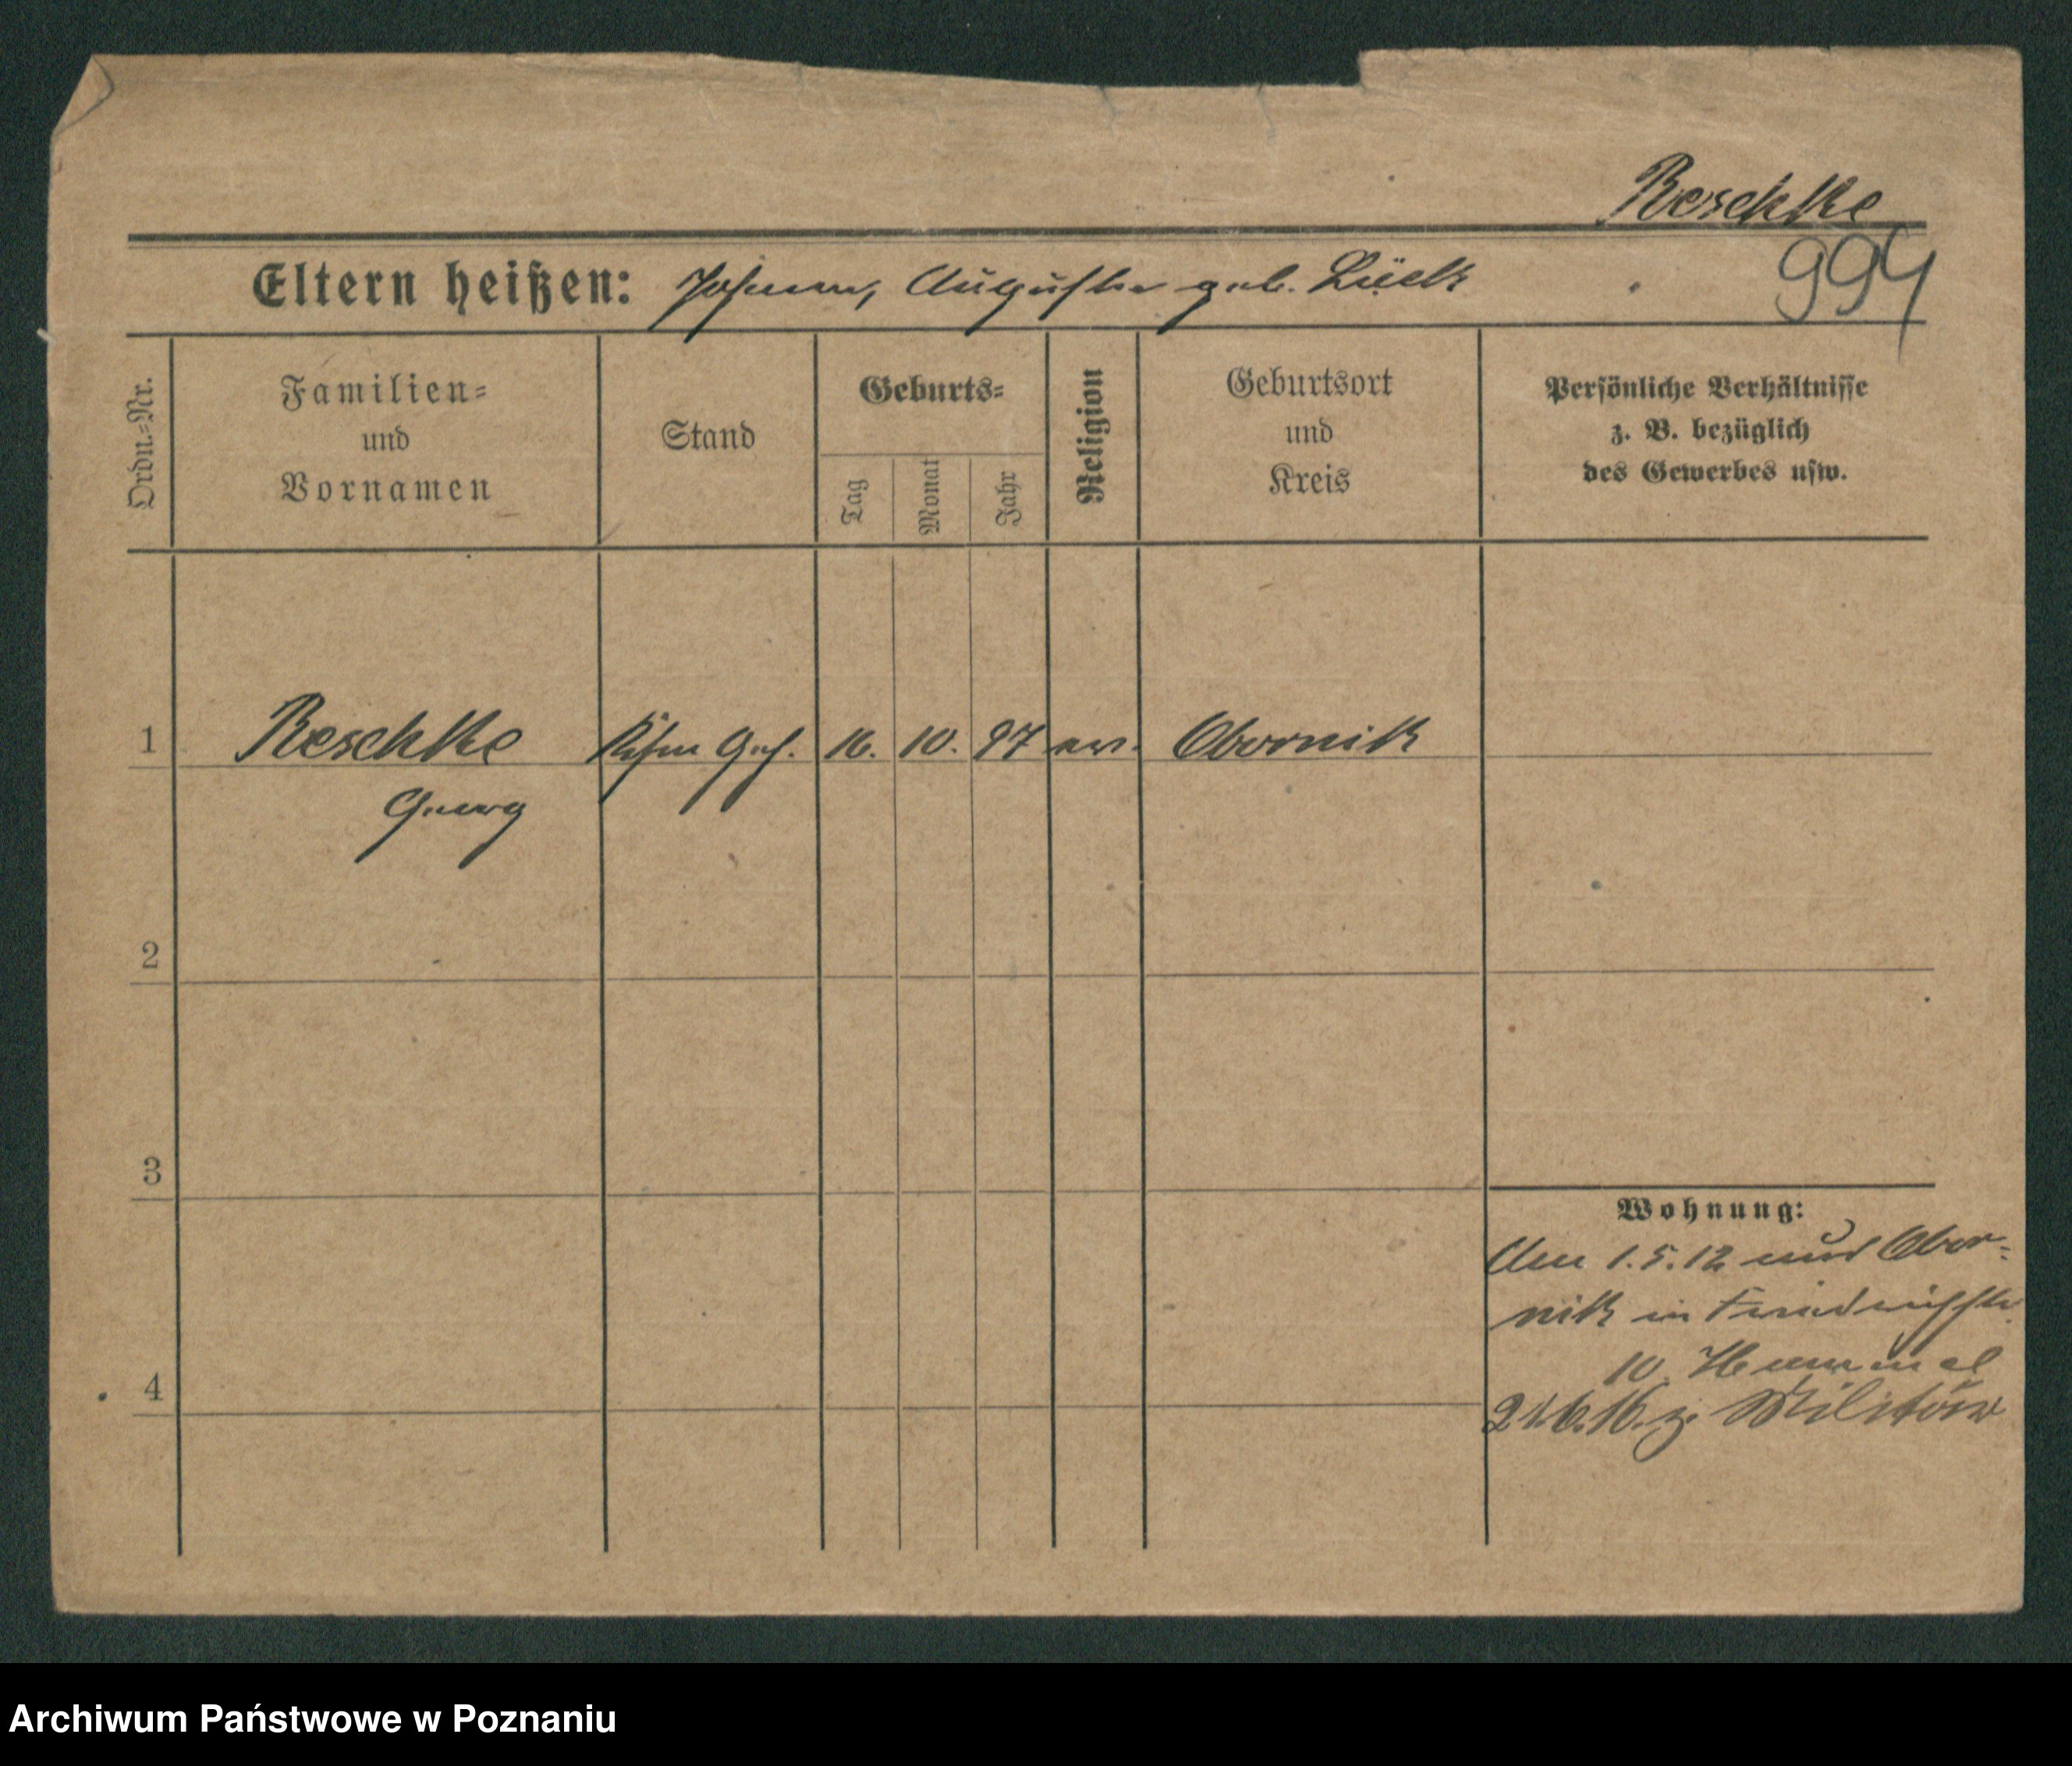 Reschke
994
Eltern heißen: Johann, Auguste geb. Lück
Ordn.-Nr.
Familien-
und
Vornamen
Stand
Geburts-
Tag
Monat
Jahr
Religion
Geburtsort
und
Kreis
Persönliche Verhältnisse
z. B. bezüglich
des Gewerbes usw.
1 Reschke 16. 10. 97 ev. Obornik
Georg
2
3
4
Wohnung:
Am 1.5.12 aus Obor-
nik in Friedrichstr.
10. Hummel
16. z. Militär
Archiwum Państwowe w Poznaniu